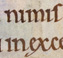 nimis
in exce